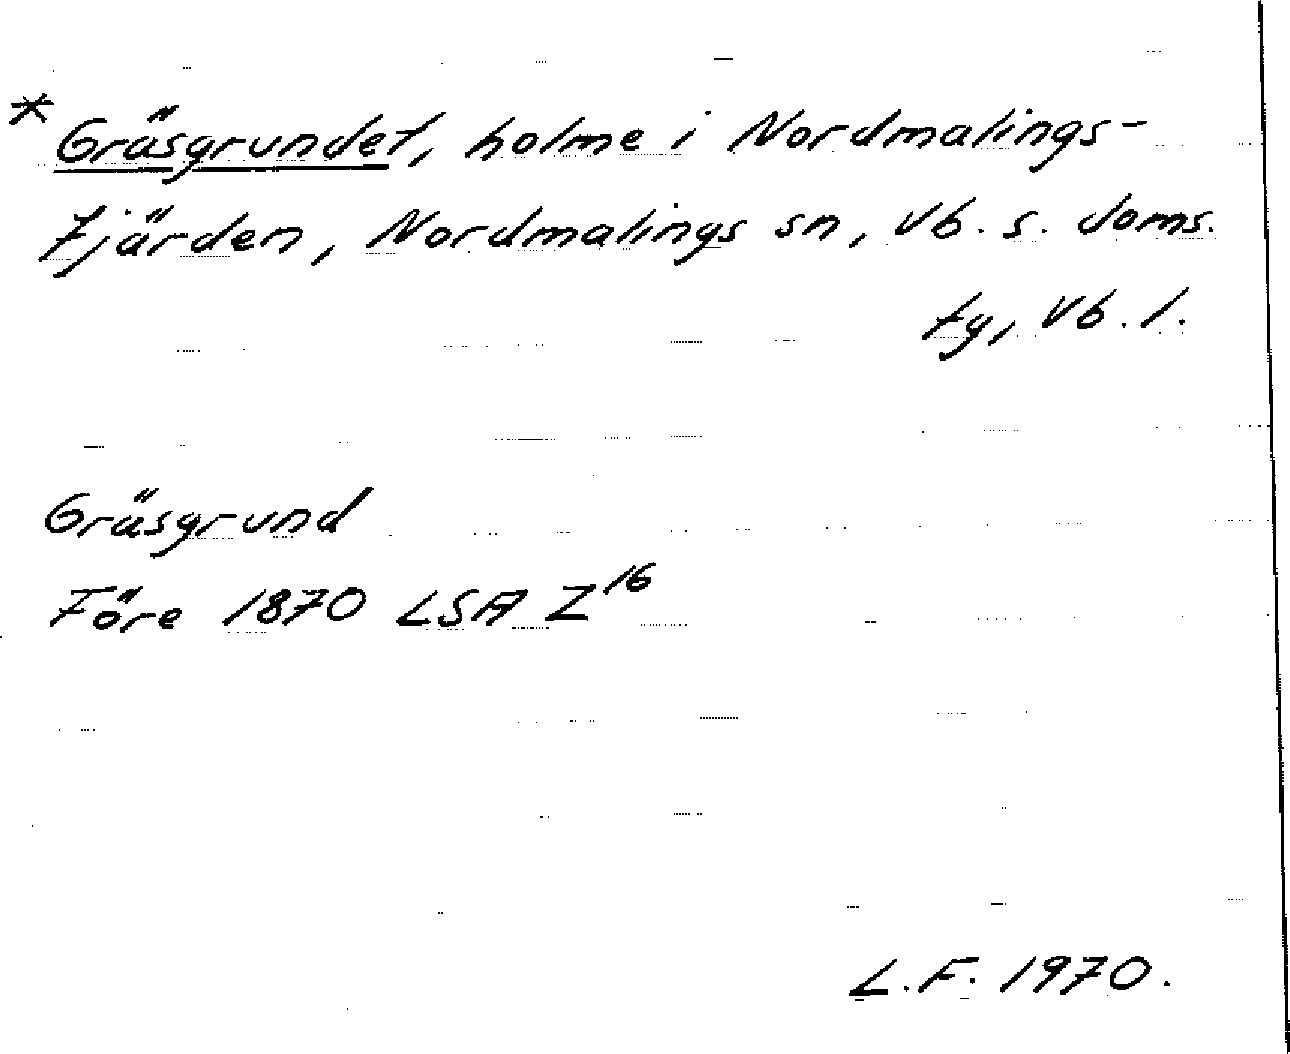 * Gräsgrundet, holme i Nordmalings-
fjärden, Nordmalings sn, Vb. s. doms.
fg, Vb. l.
Gräsgrund
Före 1870 LSA Z16
L.F. 1970.